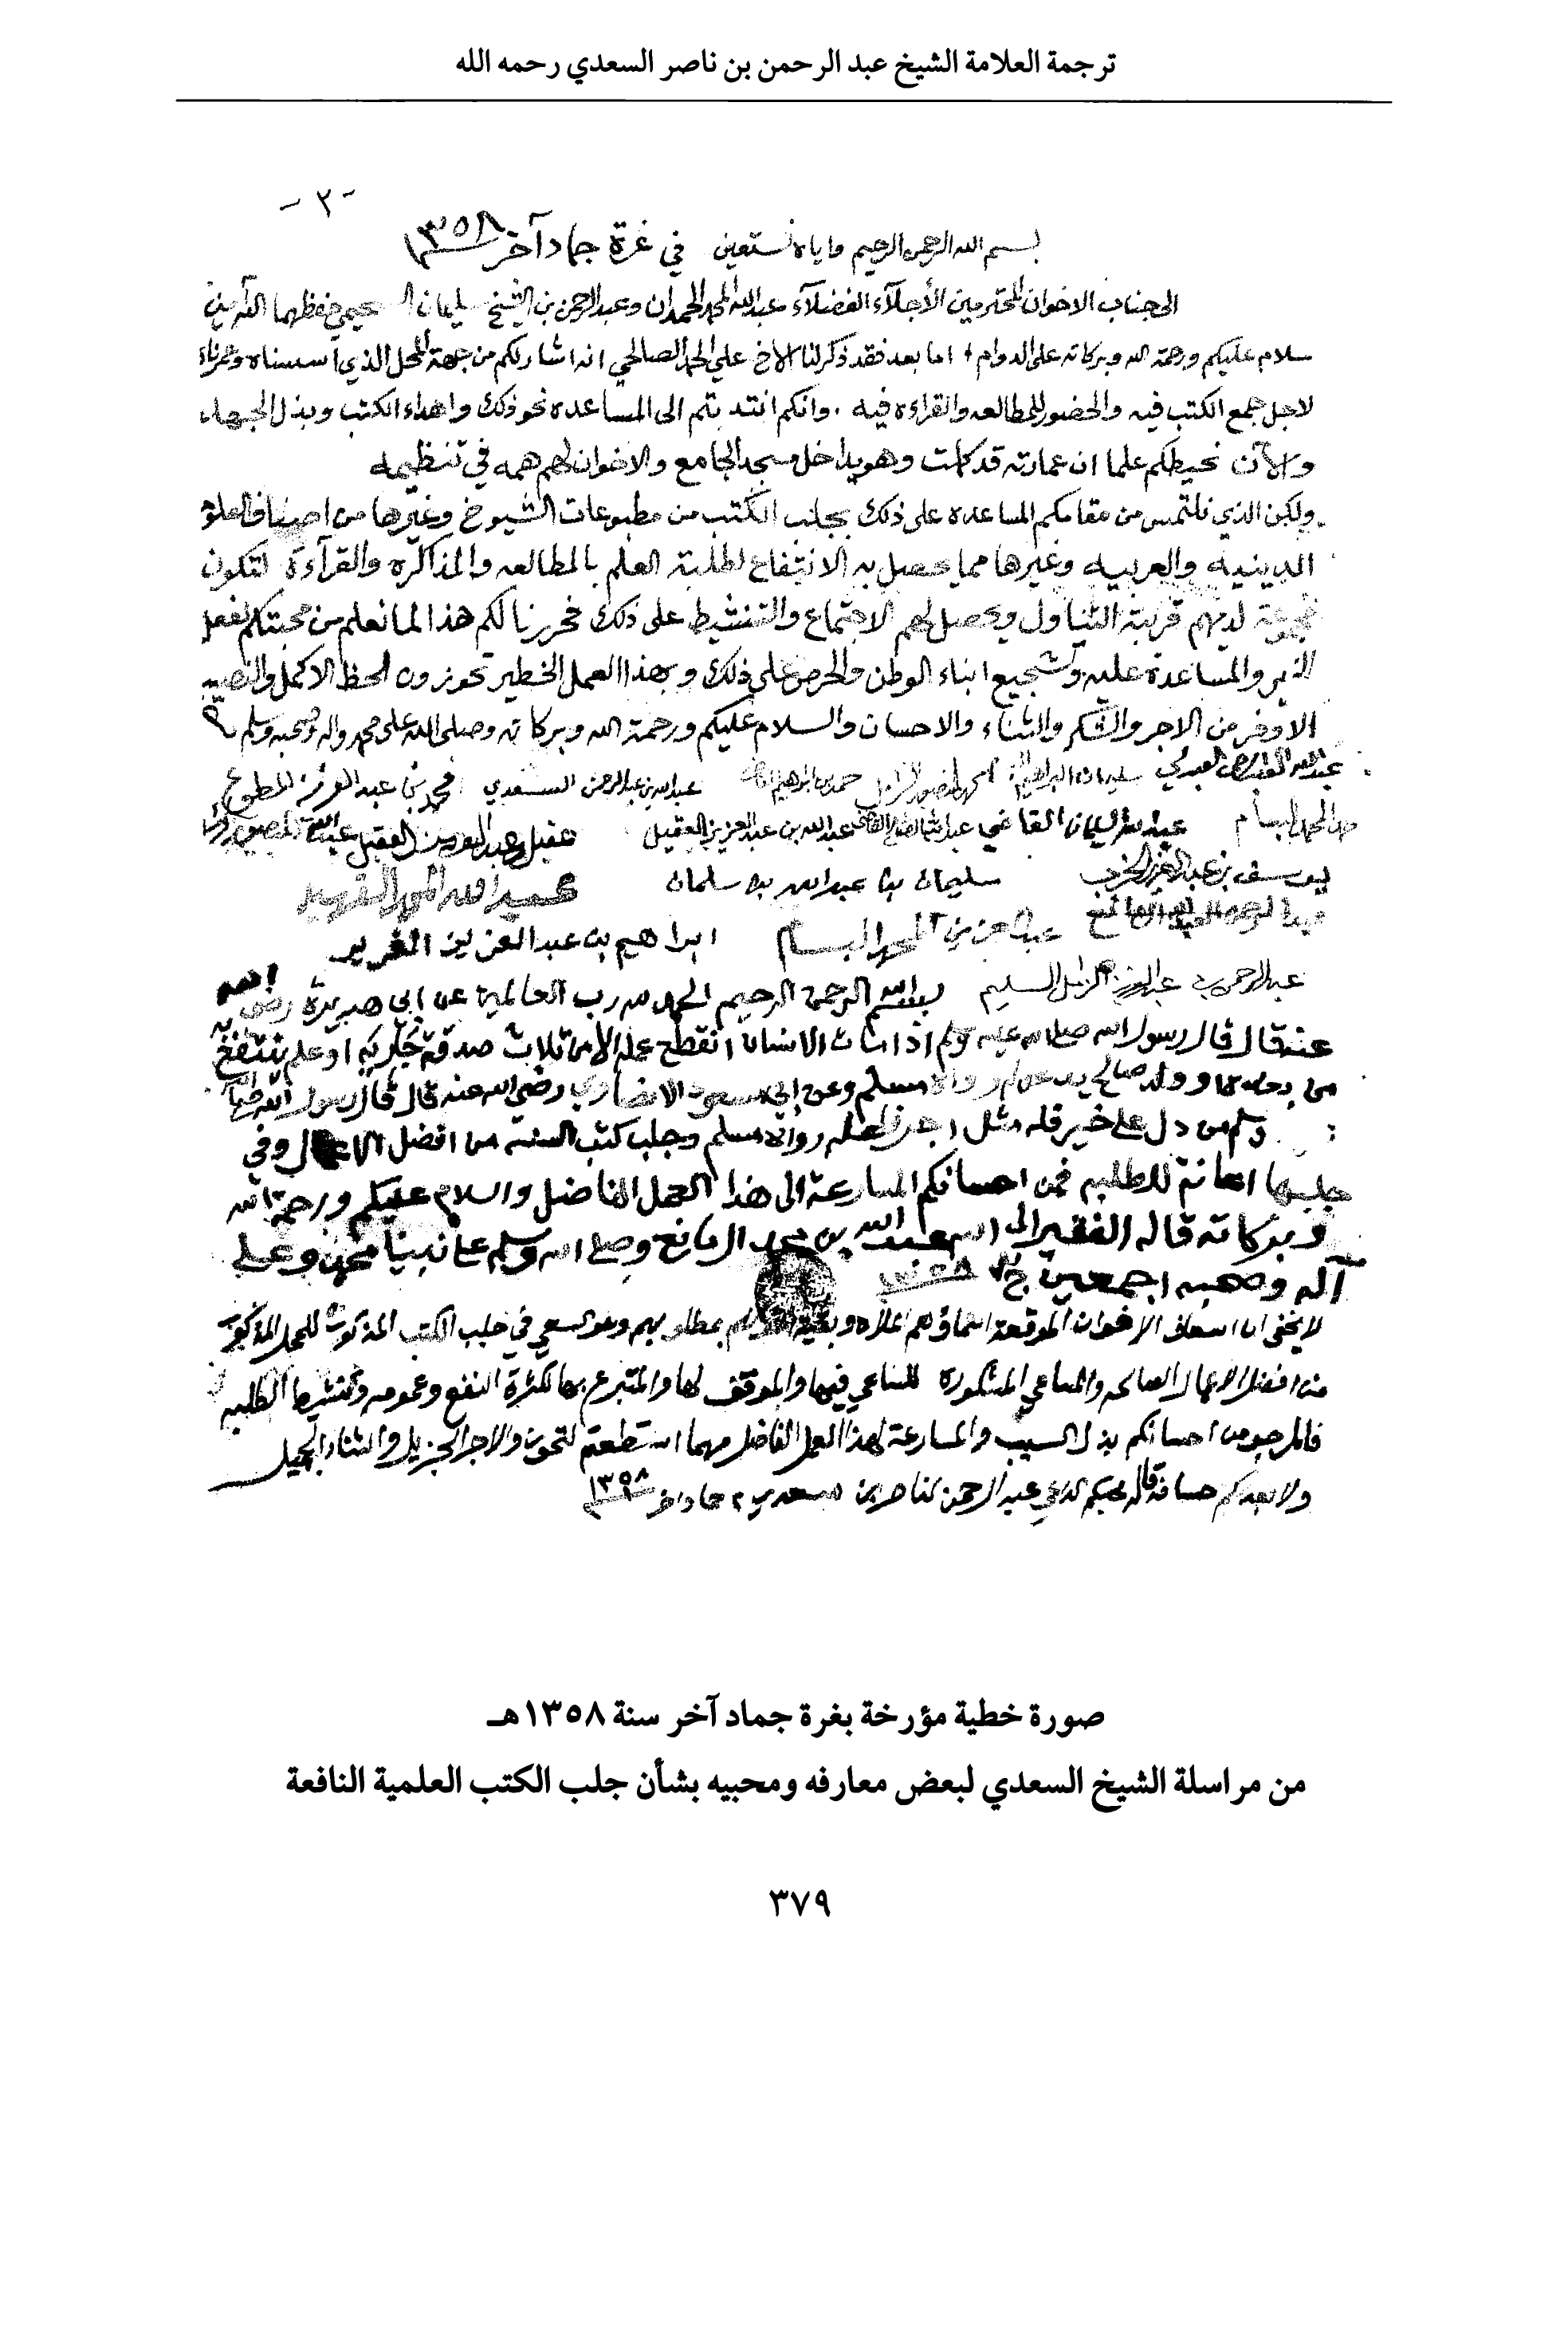 ترجمة العلامة الشيخ عبد الرحمن بن ناصر السعدي رحمه الله
-٢-
بسم الله الرحمن الرحيم واياه نستعين في غرة جماد آخر ١٣٥٨
الى جناب الاخوان المحترمين الأجلاء الفضلاء عبدالله المحمد الحمدان وعبدالرحمن بن الشيخ سليمان السحيمي حفظهما الله آمين
سلام عليكم ورحمة الله وبركاته على الدوام اما بعد فقد ذكر لنا الاخ علي الحمد الصالحي انه اشار لكم من جهة المحل الذي اسسناه وعمرناه
لاجل جمع الكتب فيه والحضور للمطالعه والقراءه فيه . وانكم انتدبتم الى المساعده نحو ذلك واهداء الكتب وبذل الجهد
والآن نحيطكم علما ان عمارته قد كملت وهو بداخل مسجد الجامع والاخوان لهم همه في تنظيمه
ولكن الذي نلتمس من مقامكم المساعده على ذلك بجلب الكتب من مطبوعات الشيوخ وغيرها من اصناف العلوم
الدينيه والعربيه وغيرها مما يحصل به الانتفاع لطلبة العلم بالمطالعه والمذاكره والقرآءة لتكون
مجموعة لديهم قريبة التناول ويحصل لهم الاجتماع والتنشيط على ذلك فحررنا لكم هذا لما نعلم من محبتكم لفعل
الخير والمساعدة عليه وتشجيع ابناء الوطن والحرص على ذلك وبهذا العمل الخطير تحوزون الحظ الاكمل والنصيب
الاوفر من الاجر والشكر والثناء والاحسان والسلام عليكم ورحمة الله وبركاته وصلى الله على محمد واله وصحبه وسلم
عبدالله سليمان البراهيم حمد بن ابراهيم عبدالله بن عبدالرحمن السعدي محمد بن عبد العزيز المطوع
حمد المحمد البسام عبدالله السليمان القاضي عبدالله بن عبدالعزيز العقيل عقيل بن عبدالعزيز العقيل عبدالله المنصور
يوسف بن عبدالعزيز سليمان بن عبدالله بن سلمان عبدالله المحمد
عبدالعزيز بن محمد البسام ابراهيم بن عبدالعزيز الغرير
عبدالرحمن بن عبدالعزيز الزامل السليم بسم الله الرحمن الرحيم الحمد لله رب العالمين عن ابي هريرة رضي الله
عنه قال قال رسول الله صلى الله عليه وسلم اذا مات الانسان انقطع عمله الا من ثلاث صدقة جاريه او علم ينتفع به
من بعده او ولد صالح يدعو له رواه مسلم وعن ابي مسعود الانصاري رضي الله عنه قال قال رسول الله صلى الله عليه
وسلم من دل على خير فله مثل اجر فاعله رواه مسلم وجلب كتب السنه من افضل الاعمال وفي
جلبها اعانة للطلبه فمن احسانكم المسارعة الى هذا العمل الفاضل والسلام عليكم ورحمة الله
وبركاته قاله الفقير الى الله عبدالله بن محمد المانع وصلى الله وسلم على نبينا محمد وعلى
آله وصحبه اجمعين ١٣٥٨
لا يخفى ان اسعاف الاخوان الموقعة اسماؤهم اعلاه وبقية بمطلوبهم وهو السعي في جلب الكتب المذكورة للمحل المذكور
من افضل الاعمال الصالحه والمساعي المشكوره للساعي فيها والموقف لها والمتبرع بها لكثرة النفع وعمومه وتنشيط الطلبه
فالمرجو من احسانكم بذل السبب والمسارعة لهذا العمل الفاضل مهما استطعتم لتحوزوا الاجر الجزيل والثناء الجميل
ولا يعدكم حسافة قاله محبكم الداعي عبدالرحمن الناصر بن سعدي ٢ جماد اخر ١٣٥٨
صورة خطية مؤرخة بغرة جماد آخر سنة ١٣٥٨هـ
من مراسلة الشيخ السعدي لبعض معارفه ومحبيه بشأن جلب الكتب العلمية النافعة
٣٧٩